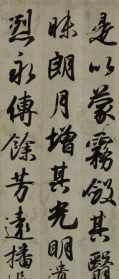 是以蒙霧斂其翳
昧朗月增其光明清
烈永傳餘芳遠播